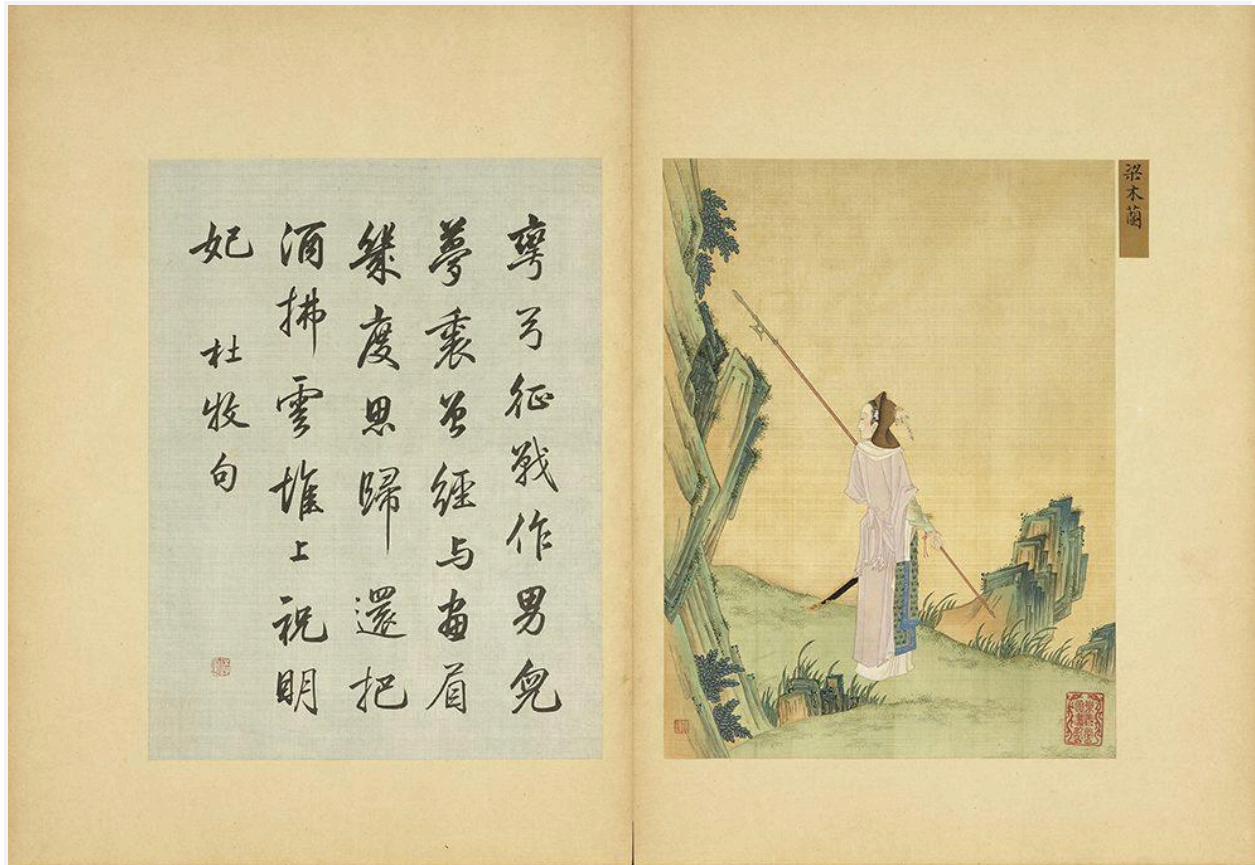 梁木蘭
彎弓征戰作男兒
夢裏曾經与畫眉
幾度思歸還把
酒拂雲堆上祝明
妃 杜牧句